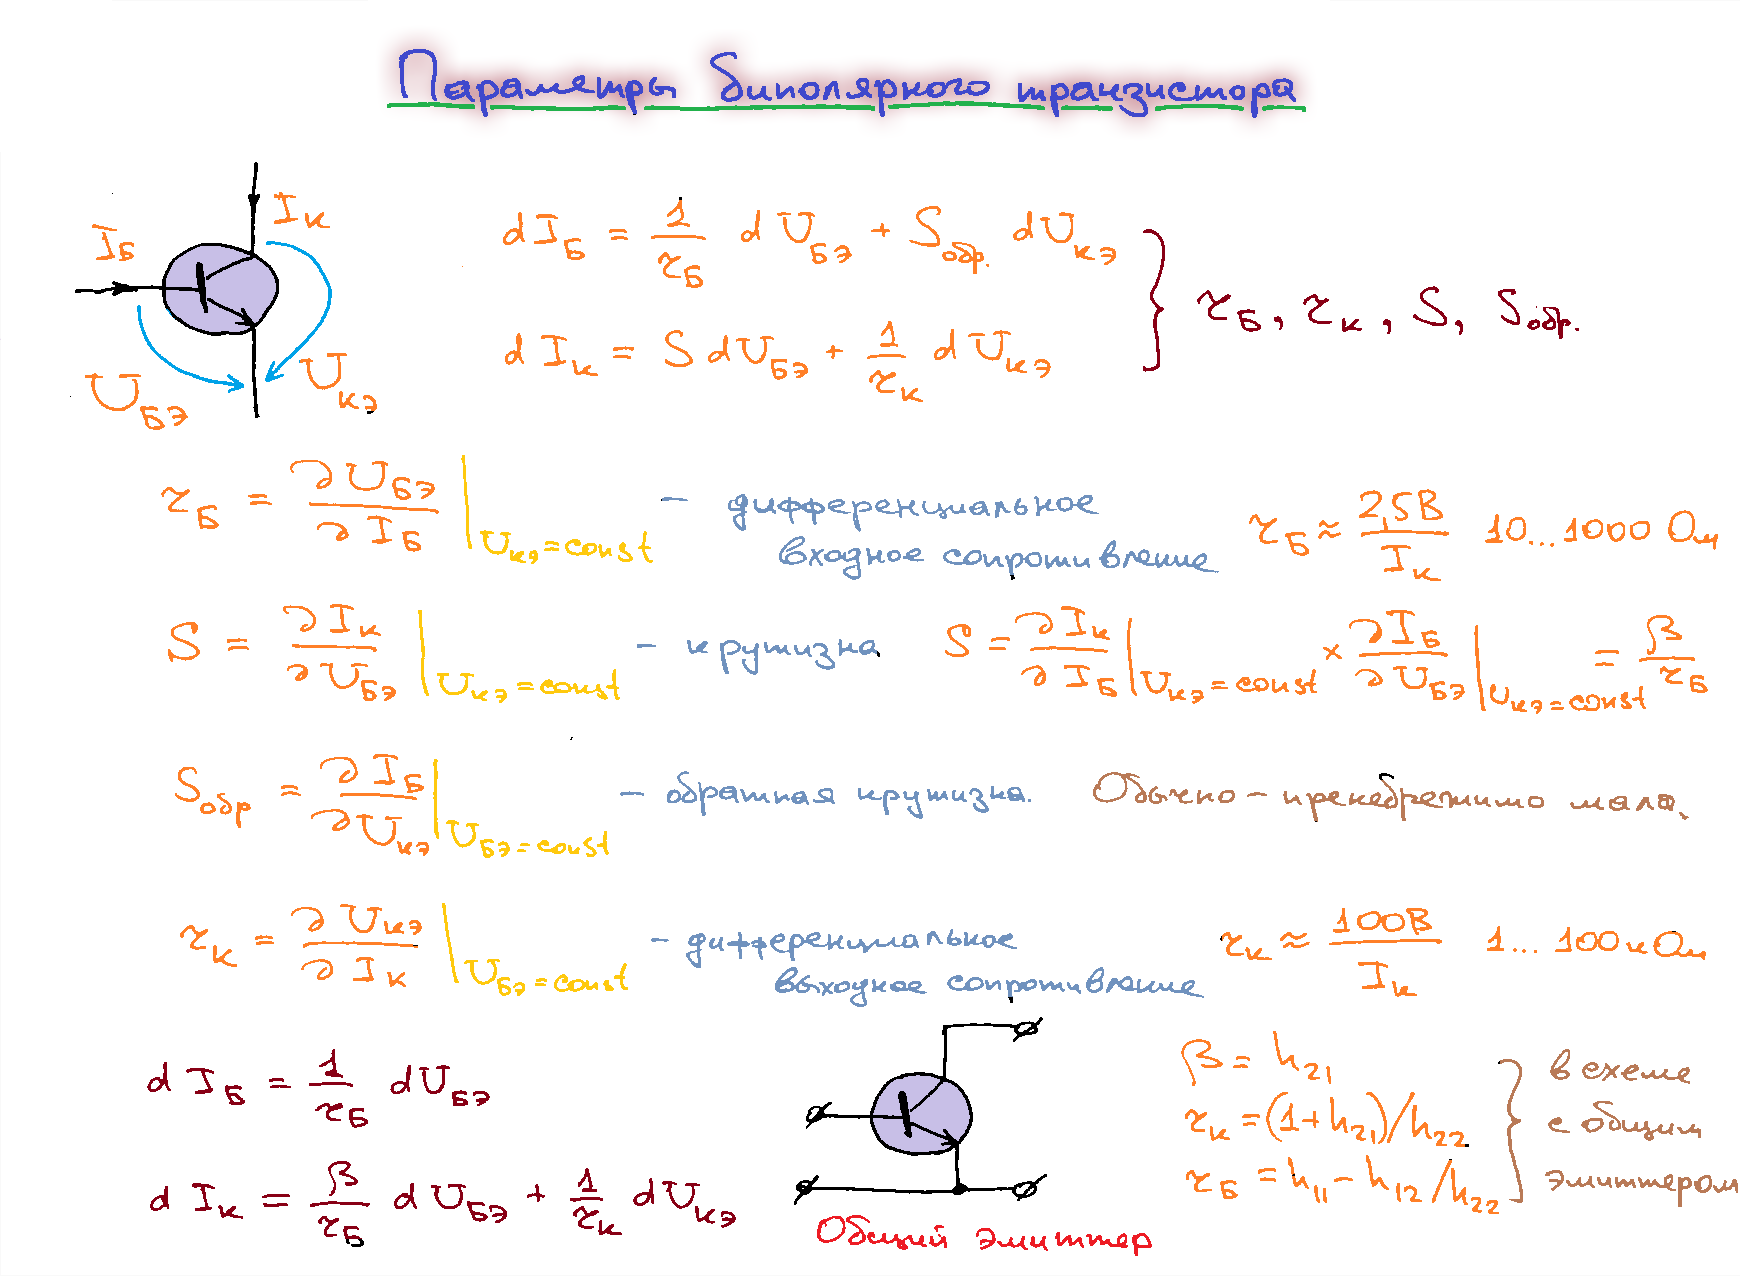 Параметры биполярного транзистора
I_К
I_Б
U_БЭ
U_КЭ
dI_Б = 1/r_Б dU_БЭ + S_обр. dU_КЭ
dI_К = S dU_БЭ + 1/r_К dU_КЭ
r_Б, r_К, S, S_обр.
r_Б = ∂U_БЭ/∂I_Б |U_КЭ=const – дифференциальное
входное сопротивление
r_Б ≈ 2,5В/I_К 10...1000 Ом
S = ∂I_К/∂U_БЭ |U_КЭ=const – крутизна
S = ∂I_К/∂I_Б |U_КЭ=const × ∂I_Б/∂U_БЭ |U_КЭ=const = β/r_Б
S_обр = ∂I_Б/∂U_КЭ |U_БЭ=const – обратная крутизна. Обычно – пренебрежимо мала.
r_К = ∂U_КЭ/∂I_К |U_БЭ=const – дифференциальное
выходное сопротивление
r_К ≈ 100В/I_К 1... 100кОм
dI_Б = 1/r_Б dU_БЭ
dI_К = β/r_Б dU_БЭ + 1/r_К dU_КЭ
Общий эмиттер
β = h_21
r_К = (1+h_21)/h_22
r_Б = h_11 – h_12/h_22
в схеме
с общим
эмиттером